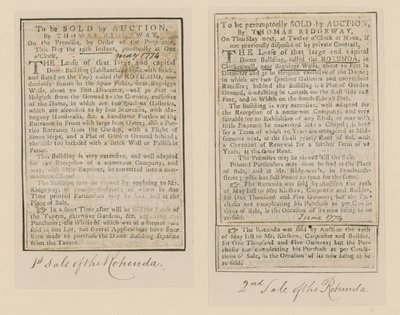 To be SOLD by AUCTION,
By THOMAS RIDGEWAY,
On the Premises, by Order of the Proprietor,
This Day the 29th instant, punctually at One
o'Clock,
May 1774
THE Lease of that large and capital
Dome Building
called the ROTUNDA,
situate in
Wells, about 70 Feet Diameter, and 50 Feet in
Height from the Ground to the Cornice, exclusive
of the Dome, in which are two spacious Galleries,
which are ascended to by four Staircases, with
hogany Hand-rails, &c. a handsome Portico at the
Entrance in Front with large Iron Gates; also a Por-
tico Entrance from the Garden, with a Flight of
Stone Steps, and a Plat of Ground behind;
the Side are inclosed with a Brick Wall or Palisado
Fence.
This Building is very extensive, and well adapted
for the Reception of a numerous Company, and
may, with little Expence, be converted into a com-
The Building may be viewed by applying to Mr.
of whom in due
Time printed Particulars may be had, and at the
Place of Sale.
In a short Time after will be sold the Lease of
the Tavern, extensive Gardens, &c. adjoining the
Pantheon; the Whole of which was at first
sold in one Lot, but several Applications have since
been made to purchase the Dome Building separate
from the Tavern.
1st Sale of the Rotunda.
To be peremptorily SOLD by AUCTION,
By THOMAS RIDGEWAY,
On Thursday next, at Twelve o'Clock at Noon, if
not previously disposed of by private Contract,
THE Lease of that large and capital
Dome Building, called the ROTUNDA, in
Clerkenwell, near Bagnigge Wells, about 70 Feet in
Diameter, and 50 in Height exclusive of the Dome;
in which are two spacious Galleries and convenient
Recesses; behind the Building is a Plat of Garden
Ground, containing in Length on the
Feet, and in Width on the South Side 28 Feet.
The Building is very extensive, well adapted for
the Reception of a numerous Company, and very
suitable for an Exhibition of any Kind, or may with
little Expence be converted into a Chapel; is held
for a Term of which 20 Years are unexpired at Mid-
summer next, at the small yearly Rent of 80l. with
a Covenant of Renewal for a further Term of 21
Years, at the same Rent.
The Premises may be viewed till the Sale.
Printed Particulars may soon be had at the Place
of Sale, and at Mr. Ridgeway's, in Fenchurch-
street; who has full Power to treat for the same.
The Rotunda was sold by Auction the 29th
of May last to Mr. Kirshaw, Carpenter and Builder,
for One Thousand and Five Guineas; but the Pur-
chaser not compleating his Purchase as per Condi-
tions of Sale, is the Occasion of its now being to be
re-sold.
June 1774
The Rotunda was sold by Auction the 29th
of May last to Mr. Kirshaw, Carpenter and Builder,
for One Thousand and Five Guineas; but the Pur-
chaser not compleating his Purchase as per Condi-
tions of Sale, is the Occasion of its now being to be
re-sold.
2nd Sale of the Rotunda.